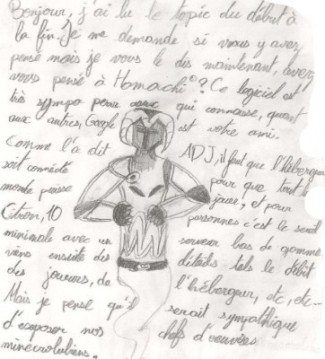 Bonjour, j'ai lu le topic du début à
la fin. Je me demande si vous y avez
pensé mais je vous le dis maintenant, avez
vous pensé à Hamachi©? Ce logiciel est
très sympa pour ceux qui connaisse, quant
aux autres, Google est votre ami.
Comme l'a dit ADJ, il faut que l'hébergeur
soit connecté pour que tout l
monde puisse jouer, et pour
10 personnes c'est le seuil
minimale avec un serveur bas de gamme
viens ensuite des détails tels le débit
des joueurs, de l'hébergeur, etc, etc-
Mais je pense qu'il serait sympathique
d'exposer nos chefs d'œuvres
minecraftiens.